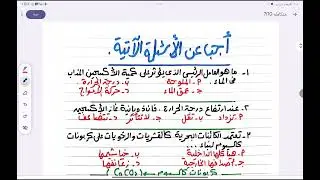 أجب عن الأسئلة الآتية.
١- ما هو العامل الرئيسي الذي يؤثر على كمية الأكسجين المذاب
في الماء.
أ. الملوحة
ب. درجة الحرارة
ج. عمق الماء
د. حركة الأمواج
٢- عند ارتفاع درجة الحرارة، فإن ذوبانية غاز الأكسجين
أ. تزداد ب. تقل ج. لا تتأثر د. تتضاعف
٣- تعتمد الكائنات البحرية كالقشريات والرخويات على كربونات
كالسيوم لبناء..
أ. هياكلها الداخلية ب. خياشيمها
ج. أصدافها الخارجية د. زعانفها
كربونات كالسيوم (CaCO3)